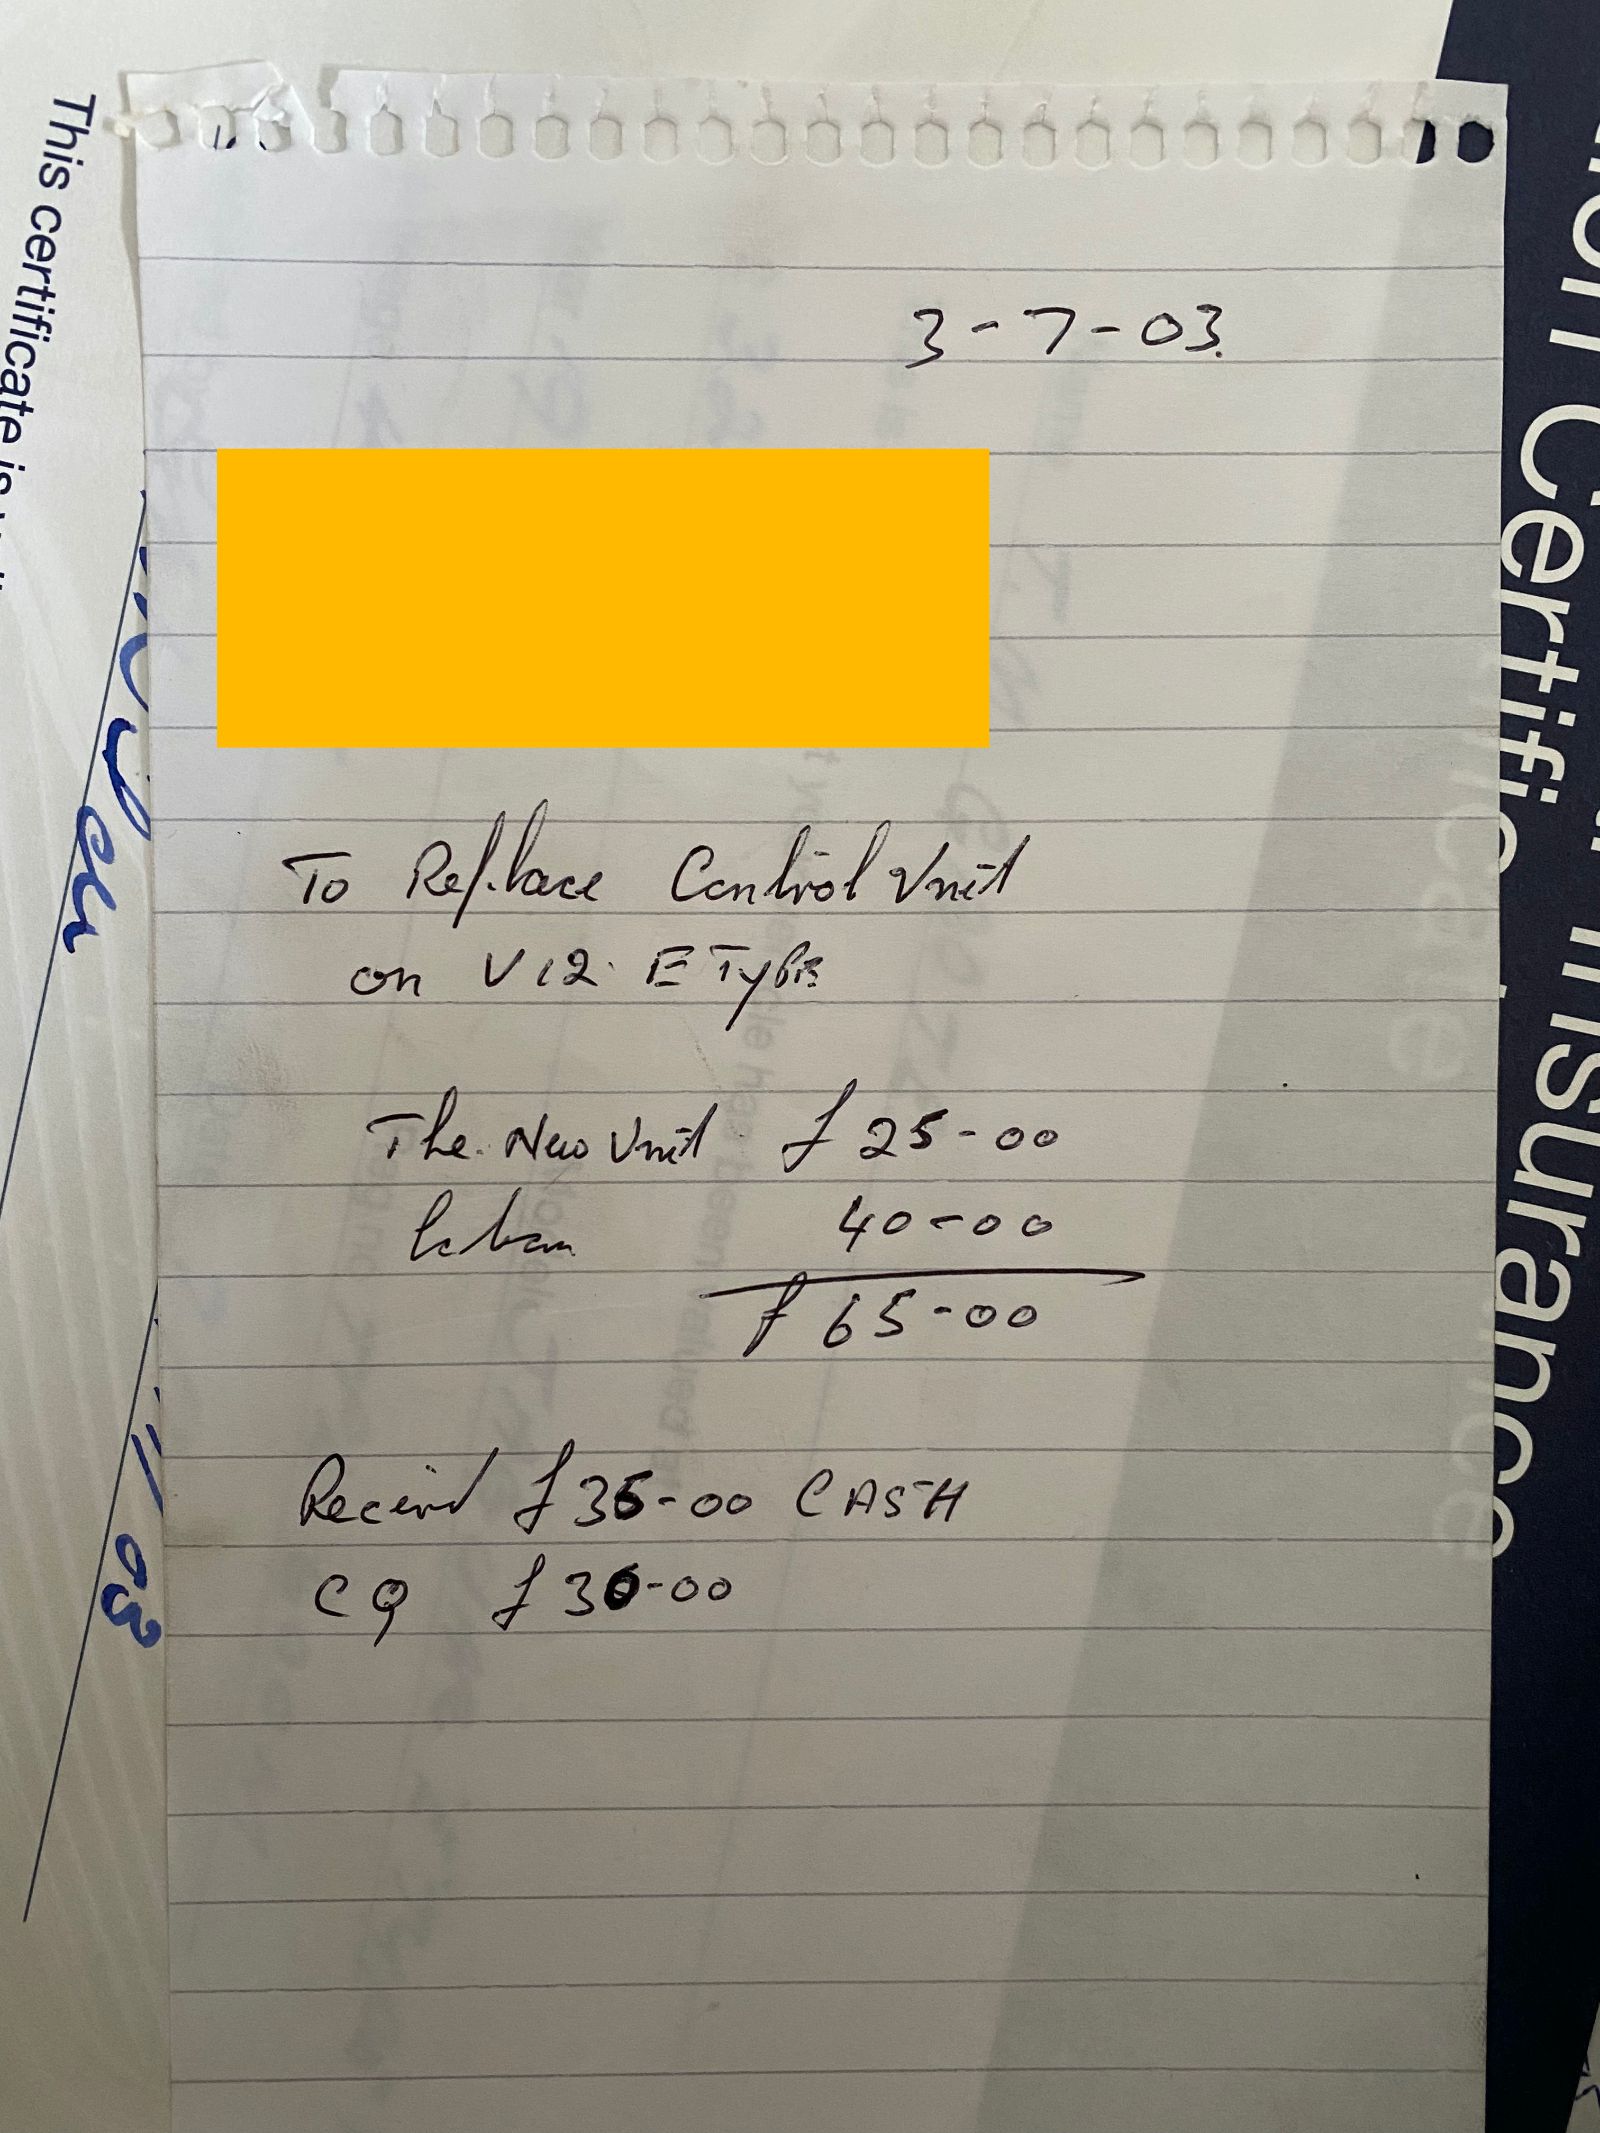 3-7-03.
To Replace Control Unit
on V12 E Type
The New Unit £25-00
labour 40-00
£65-00
Received £35-00 CASH
CQ £30-00
This certificate is
Certificate
Insurance
03